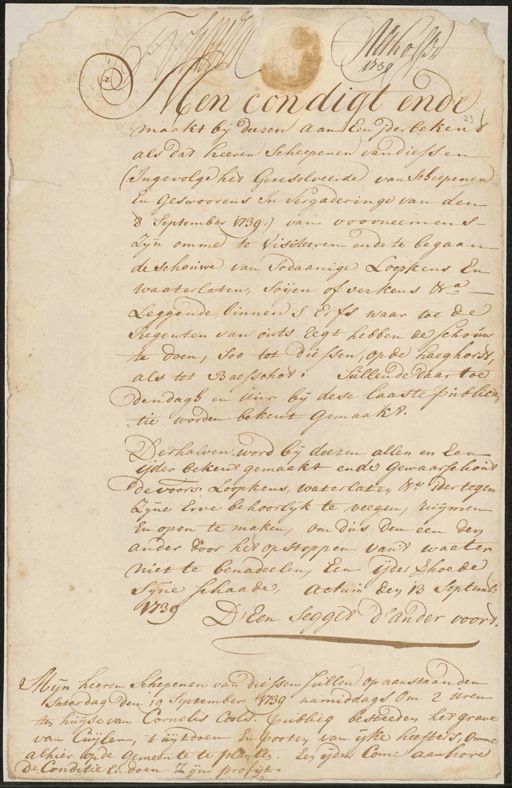 1739
23
Men condigt ende
maakt bij deezen aan Een ijder bekent
als dat heeren Scheepenen van diessen
(Ingevolge het Geresolveerde van Scheepenen
En Geswoorens In vergaderinge van den
8 September 1739.) van voorneemens
Zijn omme te Visiteren ende te begaan
de schouwe van Sodaanige Loopkens En
waaterlaten, Soijen of verkens &ra
Leggende binnen S Erfs waar toe de
Regenten van outs legt hebben de schouw
te doen, Soo tot diessen, op de haeghorst,
als tot Baesschot. Sullende daar toe
den dagh en uur bij dese laaste publica
tie worden bekent gemaakt.
Derhalven word bij deezen allen en Een
ijder bekent gemaakt ende Gewaarschout
de voors: Loopkens, waterlaten, &ra ider tegen
Zijne Erve behoorlijk te veegen, ruijmen
En open te maken, om dus den een den
ander door het opstoppen van't waater
niet te benadeelen, Een ijder hoede
Syne schaade, Actum den 13 Septemb.
1739
D'Een Segget d'ander voort.
Mijn heeren Schepenen van diessen sullen op aanstaanden
Saturdag den 19 September 1739 namiddags Om 2 uren
ten huijse van Cornelis Cools, publieq besteeden het graven
van Cuijlen, t uijtdoen En poten van ijke heesters, Omme
alhier op de gemeente te planten. Een ijder Come aanhore
de Conditie En doen Zijn profijt.